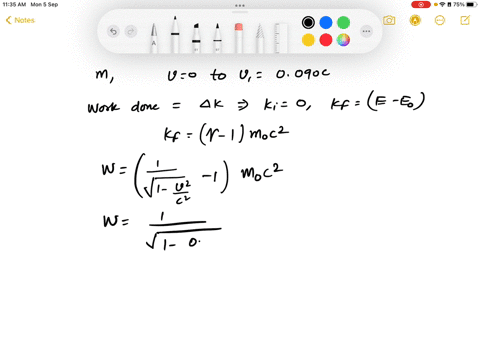 11:35 AM Mon 5 Sep
75%
Notes
m, v=0 to v₁ = 0.090c
Work done = ΔK ⇒ Ki = 0, Kf = (E - E₀)
Kf = (γ - 1) m₀c²
W = (1/√(1 - v²/c²) - 1) m₀c²
W = 1/√(1 - 0.